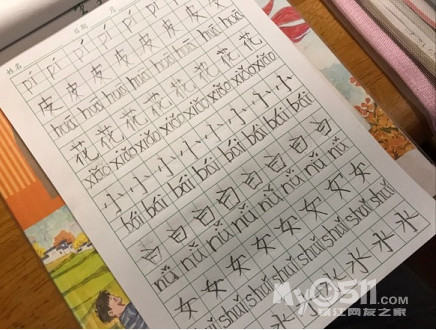 姓名
pí pí pí pí pí pí pí pí
皮 皮 皮 皮 皮 皮 皮 皮
huā huā huā huā huā huā huā huā
花 花 花 花 花 花 花 花
xiǎo xiǎo xiǎo xiǎo xiǎo xiǎo xiǎo xiǎo
小 小 小 小 小 小 小 小
bái bái bái bái bái bái bái bái
白 白 白 白 白 白 白 白
nǚ nǚ nǚ nǚ nǚ nǚ nǚ nǚ
女 女 女 女 女 女 女
shuǐ shuǐ shuǐ shuǐ shuǐ shuǐ
水 水 水
My0511.com
镇江网友之家